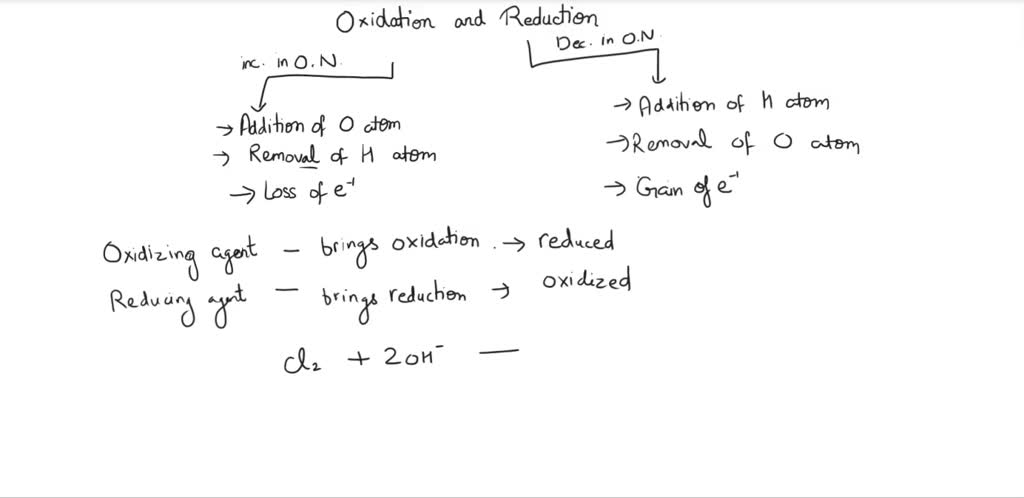 Oxidation and Reduction
inc. in O.N.
Dec. in O.N.
→ Addition of O atom
→ Removal of H atom
→ Loss of e⁻¹
→ Addition of H atom
→ Removal of O atom
→ Gain of e⁻¹
Oxidizing agent – brings oxidation. → reduced
Reducing agent – brings reduction → oxidized
Cl₂ + 2OH⁻ —